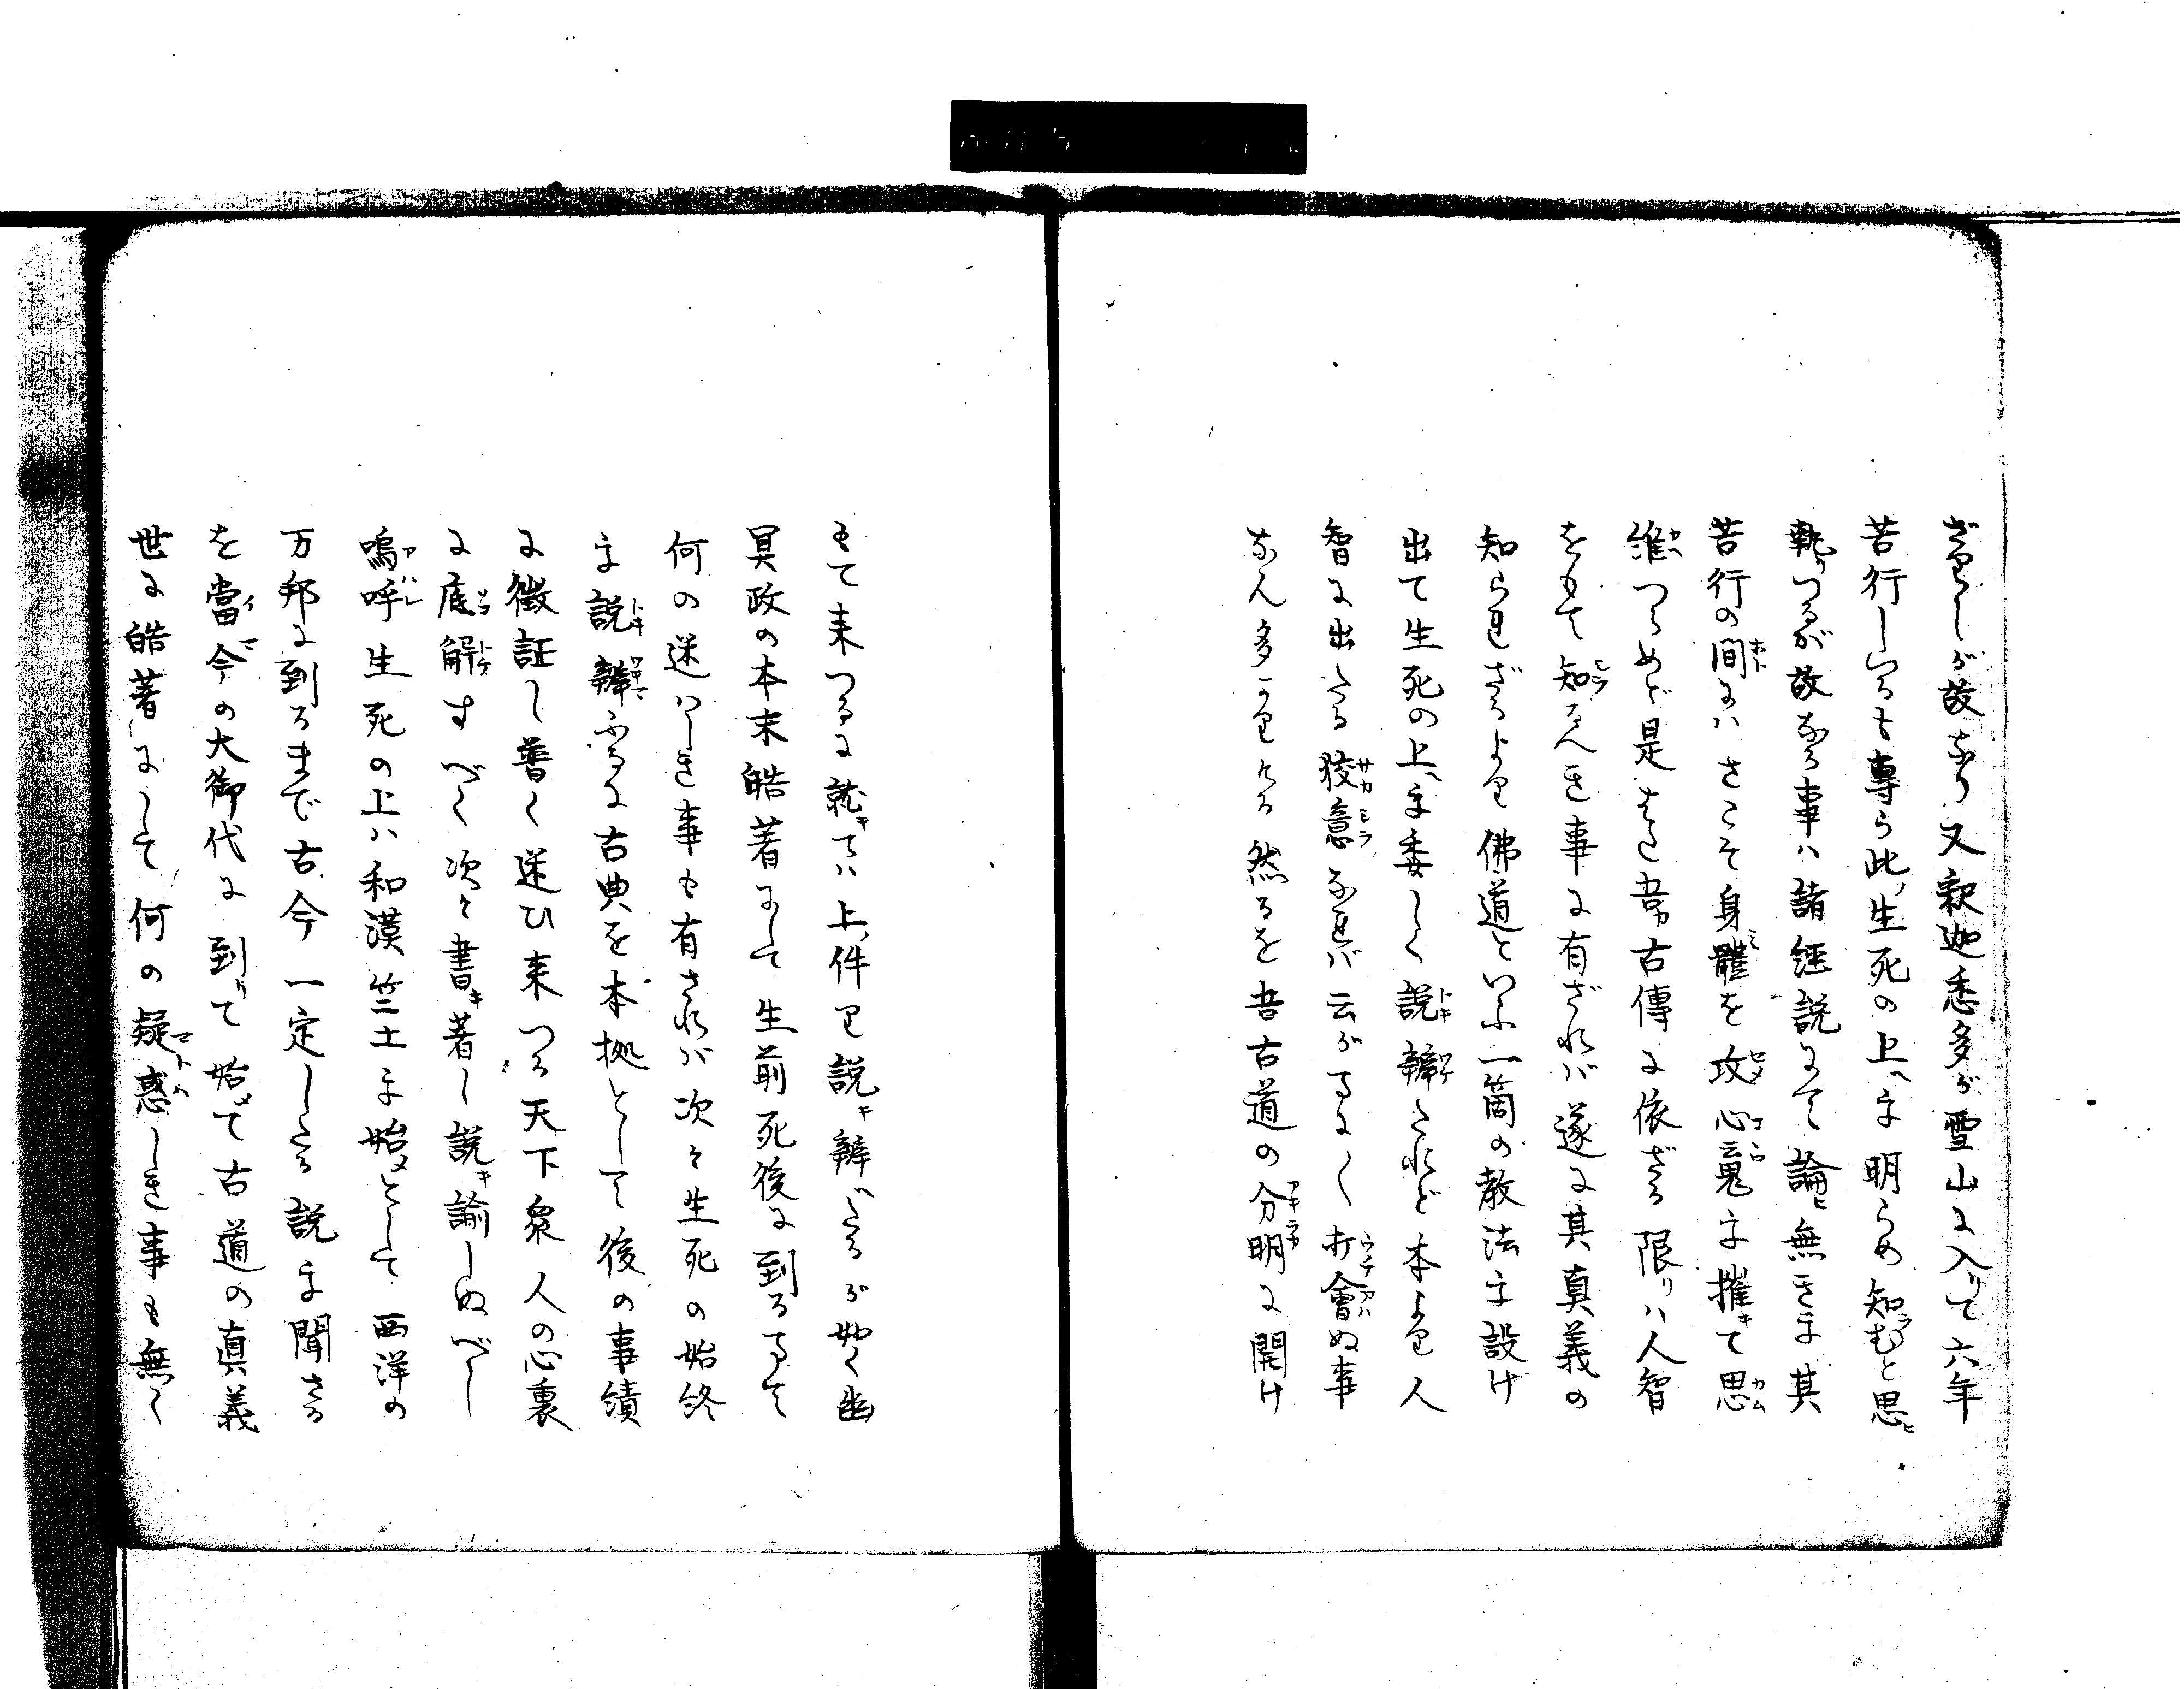 ざりしが故なり又釈迦悉多が雪山に入りて六年
苦行しつるも専ら此ノ生死の上ヘを明らめ知ラむと思ヒ
執りつるが故なる事ハ諸経説にて論ヒ無きを其
苦行の間にハさこそ身體を攻心魂を摧キて思
維つらめど是はた吾古傳に依ざる限リハ人智
をもて知るべき事に有ざれバ遂に其真義の
知られざるより佛道といふ一箇の教法を設け
出て生死の上ヘを委しく説辨たれど本より人
智に出たる狡意なれバ云がまにく打會ぬ事
なん多かりける然るを吾古道の分明に開け
もて来つるに就キてハ上ノ件り説キ辨へたるが如く幽
冥政の本末皓著にして生前死後に到るまて
何の迷ハしき事も有されバ次々生死の始終
を説辨ふるに古典を本拠として後の事績
に徴証し普く迷ひ来つる天下衆人の心裏
に底解すべく次々書キ著し説キ諭しぬべし
嗚呼生死の上ハ和漢竺土を始メとして西洋の
万邦に到るまで古今一定したる説を聞さる
を當今の大御代に到リて始メて古道の真義
世に皓著にして何の疑惑しき事も無く